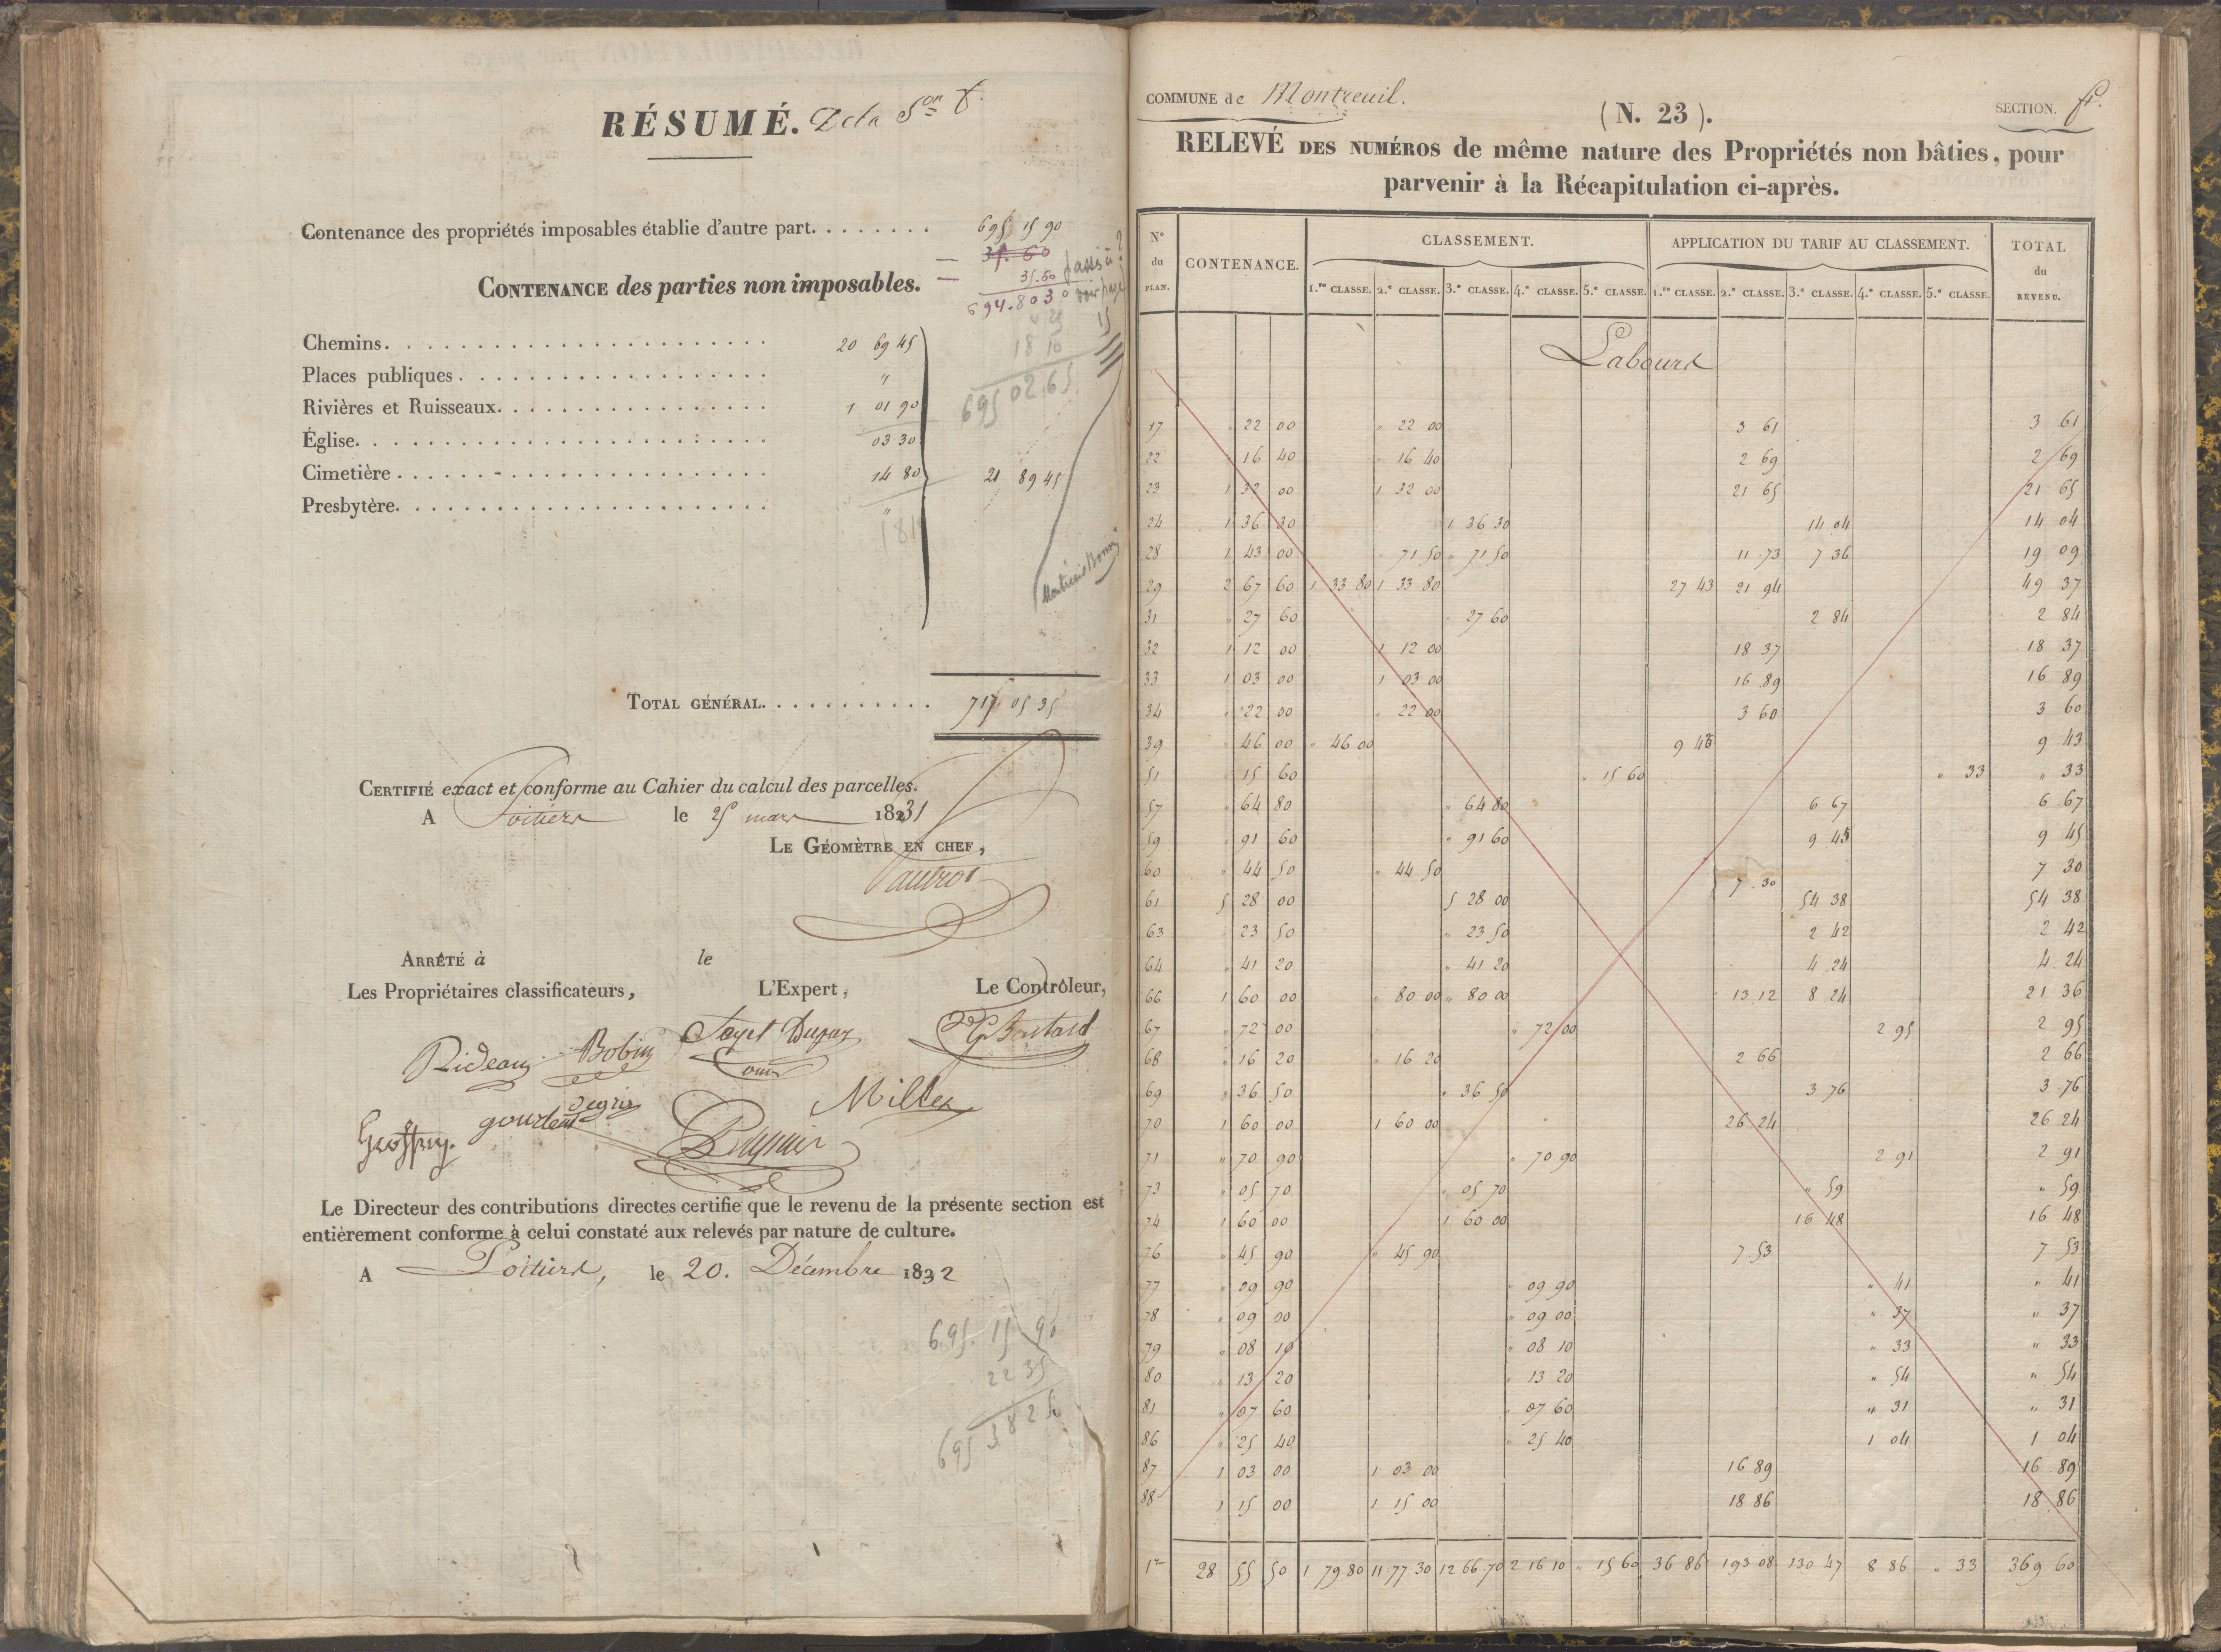 RÉSUMÉ. De la Son
Contenance des propriétés imposables établie d'autre part. . . . . . . . 695 15 90
— 35. 60
CONTENANCE des parties non imposables. — 35.60 passé à
694.80 30 voir page
15
Chemins. . . . . . . . 20 69 45
18 10
Places publiques . . . . . . . . "
695 02 65
Rivières et Ruisseaux. . . . . . . . 1 01 90
Église. . . . . . . . 03 30
Cimetière . . . . . . . . 14 80 21 89 45
Presbytère. . . . . . . . "
TOTAL GÉNÉRAL. . . . . . . . 717 05 35
CERTIFIÉ exact et conforme au Cahier du calcul des parcelles.
A Poitiers le 25 mars 1831
LE GÉOMÈTRE EN CHEF,
ARRÊTÉ à le
Les Propriétaires classificateurs, L'Expert, Le Contrôleur,
Rideau Bobin
Millet
Le Directeur des contributions directes certifie que le revenu de la présente section est
entièrement conforme à celui constaté aux relevés par nature de culture.
A Poitiers, le 20. Décembre 1832
695. 15 90
22 35
695 38 25
COMMUNE de Montreuil. (N. 23). SECTION.
RELEVÉ DES NUMÉROS de même nature des Propriétés non bâties, pour
parvenir à la Récapitulation ci-après.
N° du PLAN. CONTENANCE. CLASSEMENT. APPLICATION DU TARIF AU CLASSEMENT. TOTAL du REVENU.
1.re CLASSE. 2.e CLASSE. 3.e CLASSE. 4.e CLASSE. 5.e CLASSE. 1.re CLASSE. 2.e CLASSE. 3.e CLASSE. 4.e CLASSE. 5.e CLASSE.
Labours
17 " 22 00 " 22 00 3 61 3 61
22 " 16 40 " 16 40 2 69 2 69
23 1 32 00 1 32 00 21 65 21 65
24 1 36 30 1 36 30 14 04 14 04
28 1 43 00 " 71 50 " 71 50 11 73 7 36 19 09
29 2 67 60 1 33 80 1 33 80 27 43 21 94 49 37
31 " 27 60 " 27 60 2 84 2 84
32 1 12 00 1 12 00 18 37 18 37
33 1 03 00 1 03 00 16 89 16 89
34 " 22 00 " 22 00 3 60 3 60
39 " 46 00 " 46 00 9 43 9 43
51 " 15 60 " 15 60 " 33 " 33
57 " 64 80 " 64 80 6 67 6 67
59 " 91 60 " 91 60 9 45 9 45
60 " 44 50 " 44 50 7 30 7 30
61 5 28 00 5 28 00 54 38 54 38
63 " 23 50 " 23 50 2 42 2 42
64 " 41 20 " 41 20 4 24 4 24
66 1 60 00 " 80 00 " 80 00 13 12 8 24 21 36
67 " 72 00 " 72 00 2 95 2 95
68 " 16 20 " 16 20 2 66 2 66
69 " 36 50 " 36 50 3 76 3 76
70 1 60 00 1 60 00 26 24 26 24
71 " 70 90 " 70 90 2 91 2 91
73 " 05 70 " 05 70 " 59 " 59
74 1 60 00 1 60 00 16 48 16 48
76 " 45 90 " 45 90 7 53 7 53
77 " 09 90 " 09 90 " 41 " 41
78 " 09 00 " 09 00 " 37 " 37
79 " 08 10 " 08 10 " 33 " 33
80 " 13 20 " 13 20 " 54 " 54
81 " 07 60 " 07 60 " 31 " 31
86 " 25 40 " 25 40 1 04 1 04
87 1 03 00 1 03 00 16 89 16 89
88 1 15 00 1 15 00 18 86 18 86
1re 28 55 50 1 79 80 11 77 30 12 66 70 2 16 10 " 15 60 36 86 193 08 130 47 8 86 " 33 369 60